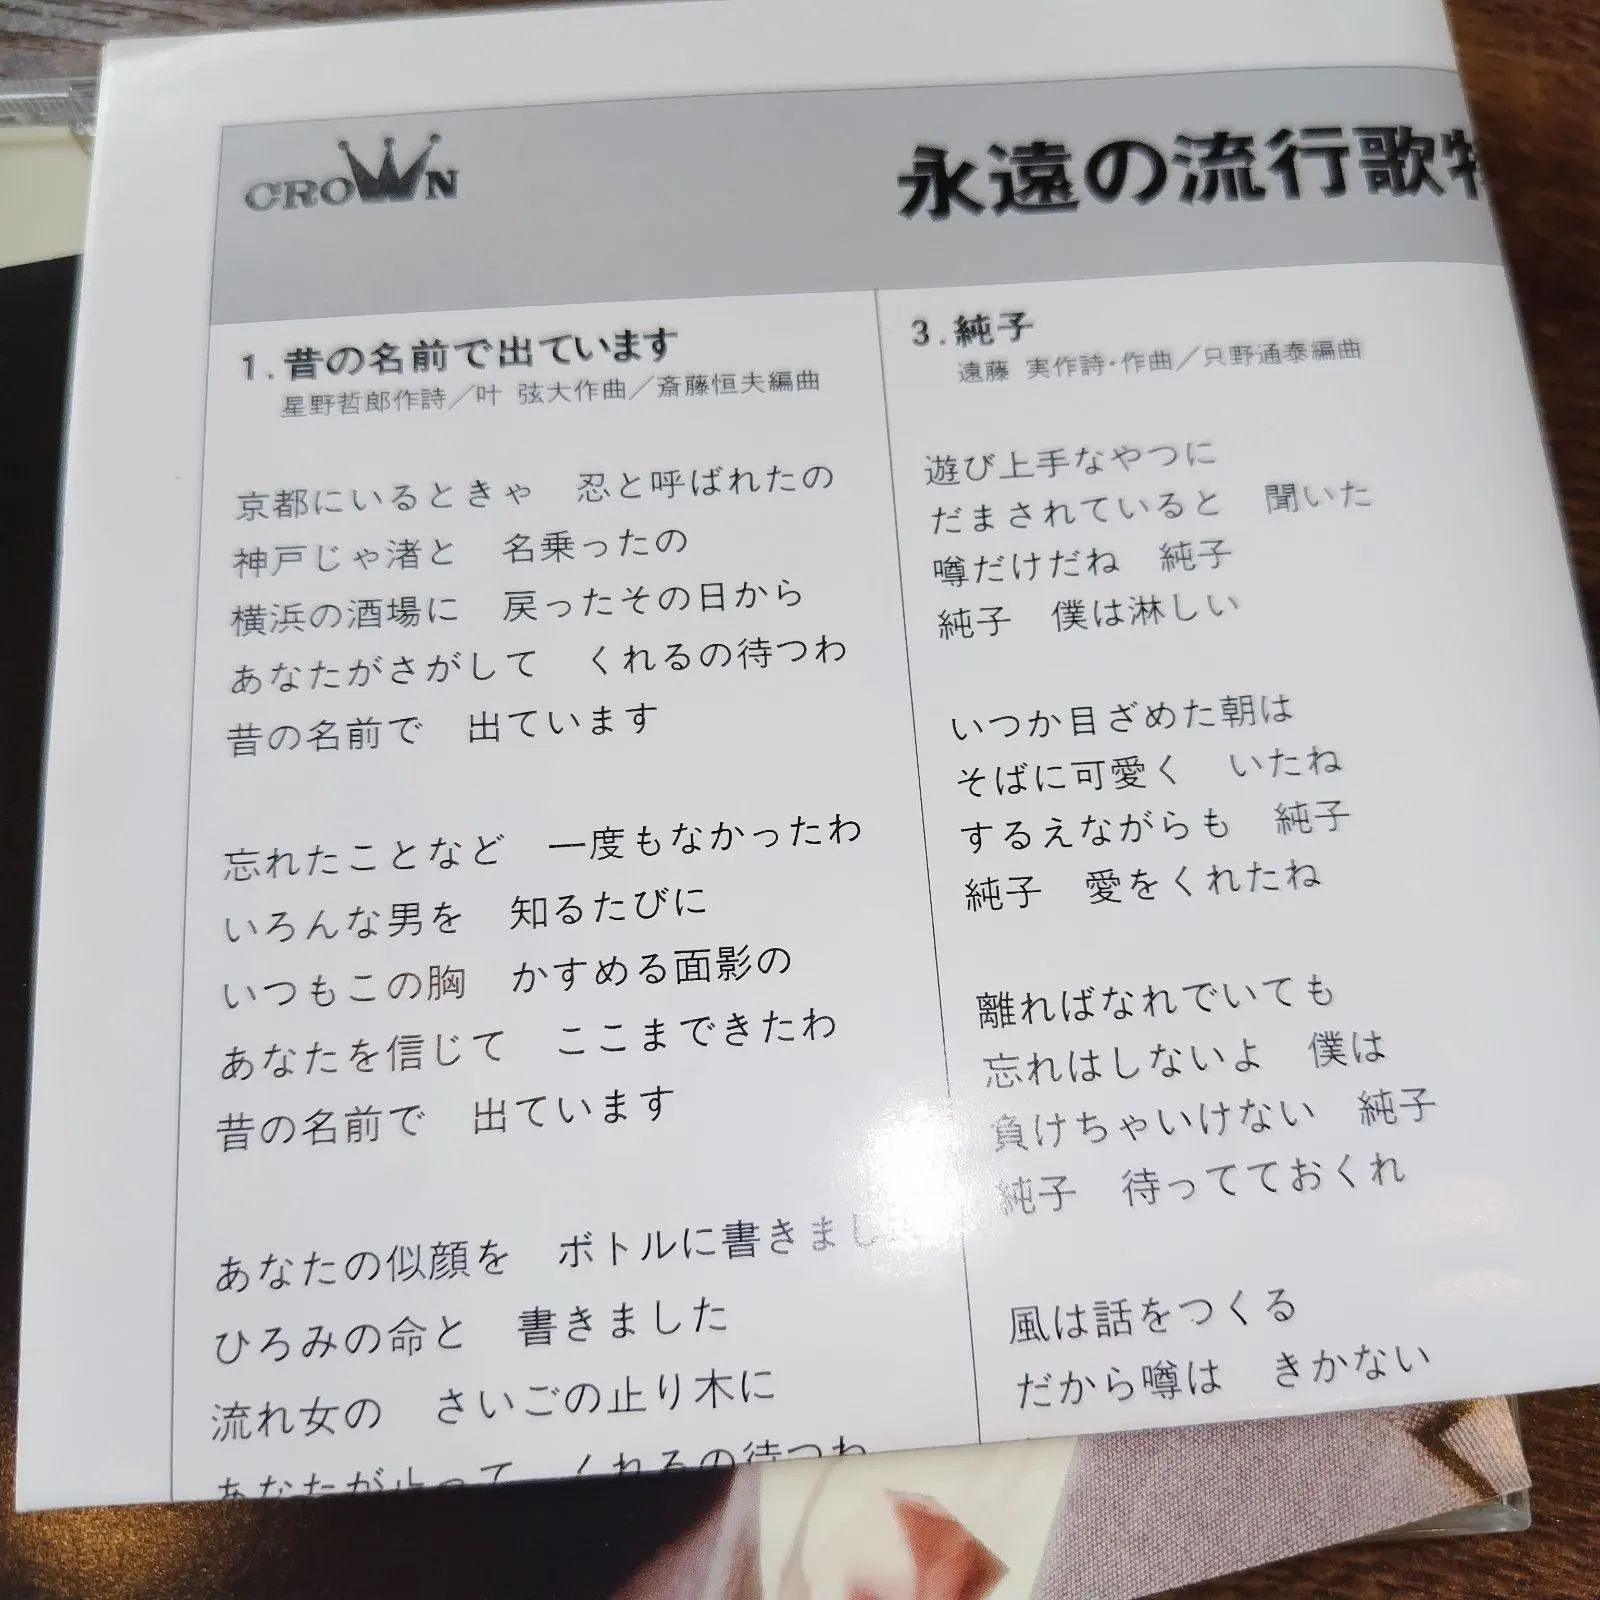 CROWN
永遠の流行歌
1.昔の名前で出ています
星野哲郎作詩／叶 弦大作曲／斎藤恒夫編曲
京都にいるときゃ 忍と呼ばれたの
神戸じゃ渚と 名乗ったの
横浜の酒場に 戻ったその日から
あなたがさがして くれるの待つわ
昔の名前で 出ています
忘れたことなど 一度もなかったわ
いろんな男を 知るたびに
いつもこの胸 かすめる面影の
あなたを信じて ここまできたわ
昔の名前で 出ています
あなたの似顔を ボトルに書きまし
ひろみの命と 書きました
流れ女の さいごの止り木に
あなたが止って くれるの待つわ
3.純子
遠藤 実作詩・作曲／只野通泰編曲
遊び上手なやつに
だまされていると 聞いた
噂だけだね 純子
純子 僕は淋しい
いつか目ざめた朝は
そばに可愛く いたね
するえながらも 純子
純子 愛をくれたね
離ればなれでいても
忘れはしないよ 僕は
負けちゃいけない 純子
純子 待ってておくれ
風は話をつくる
だから噂は きかない